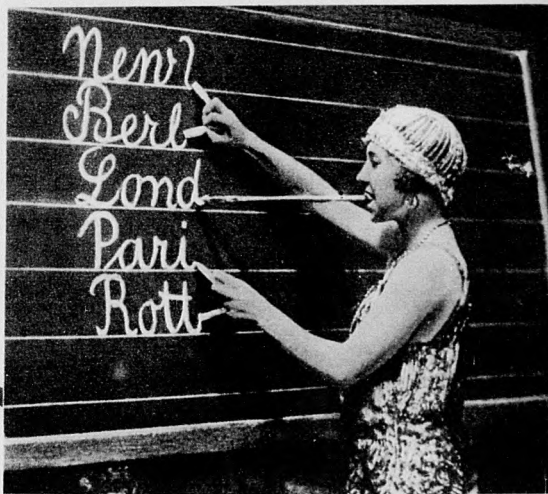 New
Berl
Lond
Pari
Rott